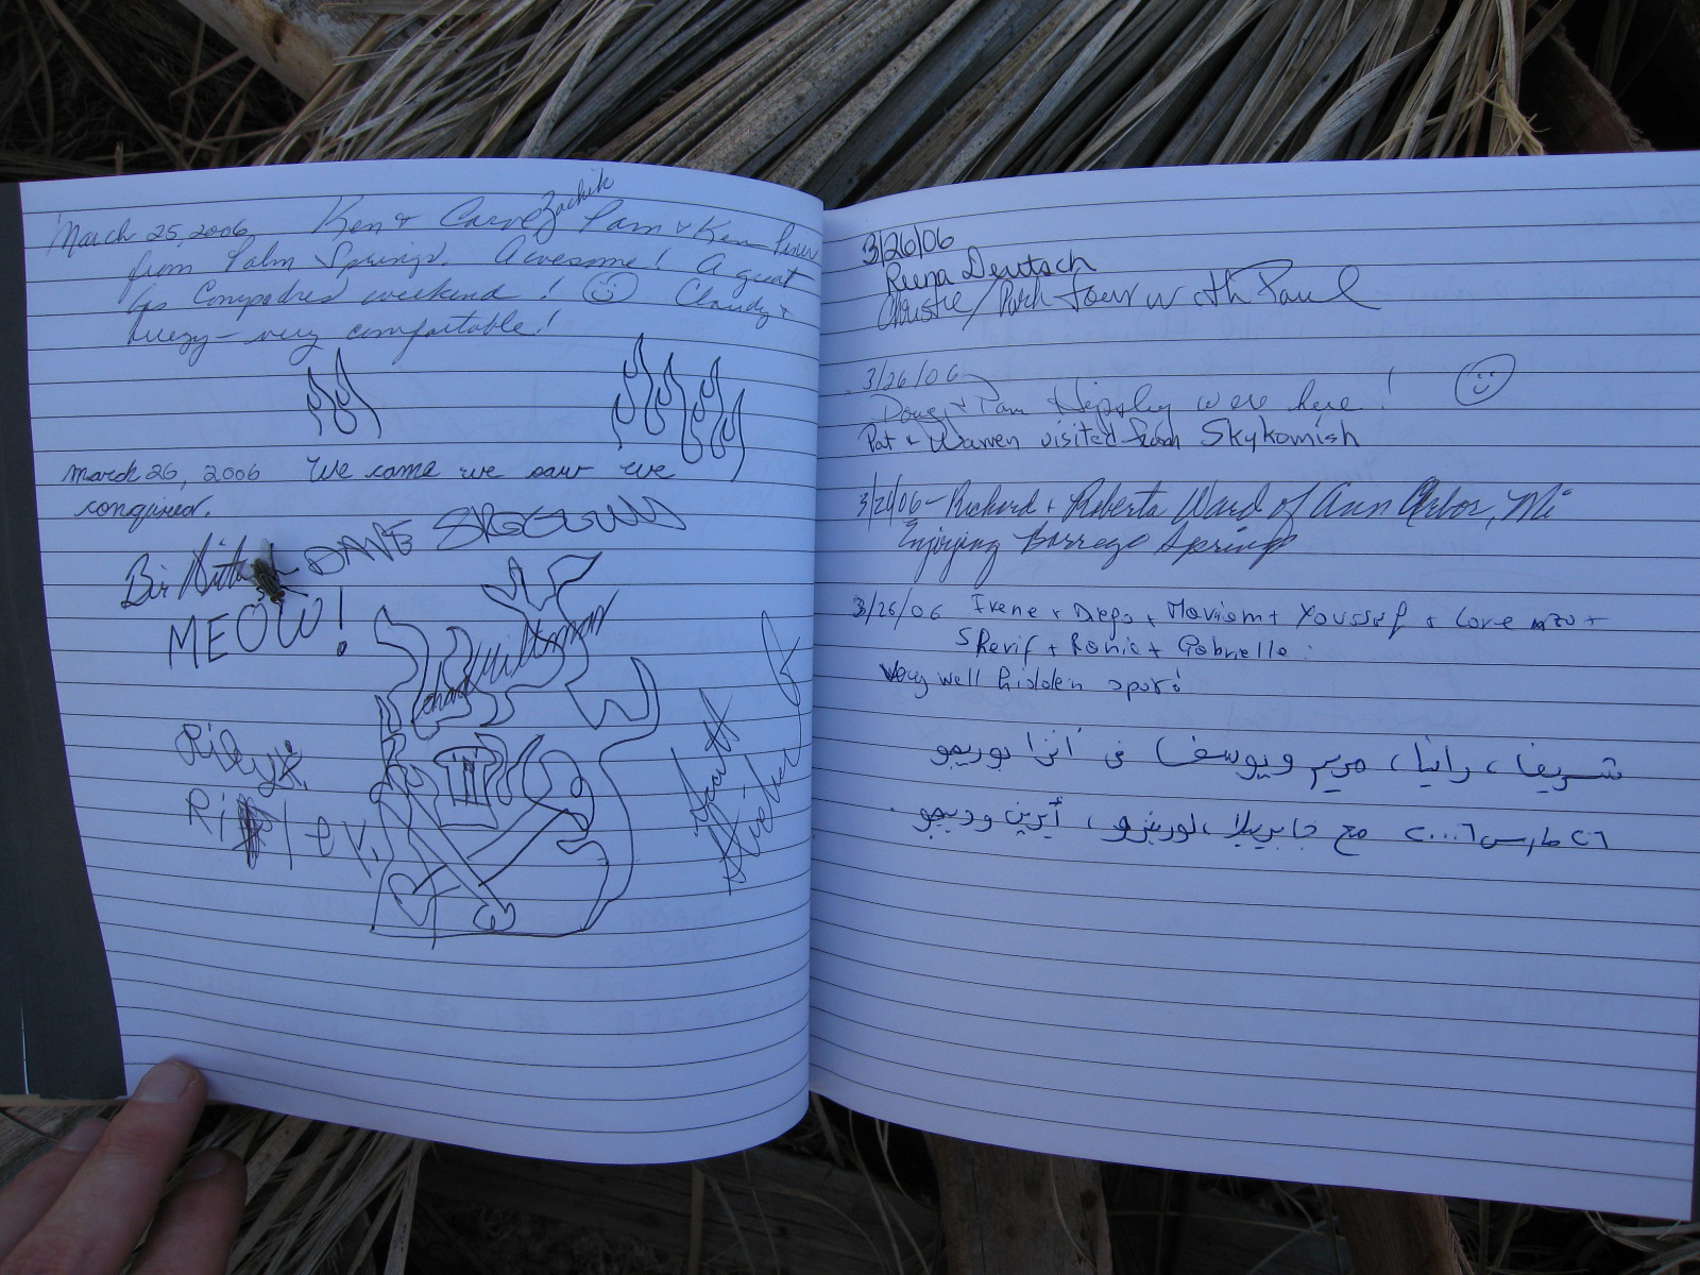 March 25, 2006 Ken & Carol Zachik Pam & Ken
from Palm Springs. Awesome! A great
Los Compadres weekend! Cloudy &
breezy - very comfortable!
March 26, 2006 We came we saw we
conqired.
DAVE
MEOW!
Riley
Riley.
3/26/06
Reena Deutsch
Christie/Park tour with Paul
3/26/06
Doug & Pam were here!
Pat & Warren visited from Skykomish
3/26/06 - Richard & Roberta Ward of Ann Arbor, Mi
Enjoying Borrego Springs
3/26/06 Irene + Diego + Mariam + Youssef + Lorenzo +
Sherif + Rania + Gabriella
Very well hidden spot!
شريف، رانيا، مريم ويوسف فى أنزا بوريجو
٢٦ مارس ٢٠٠٦ مع جابرييلا، لورينزو، أيرين ودييجو.